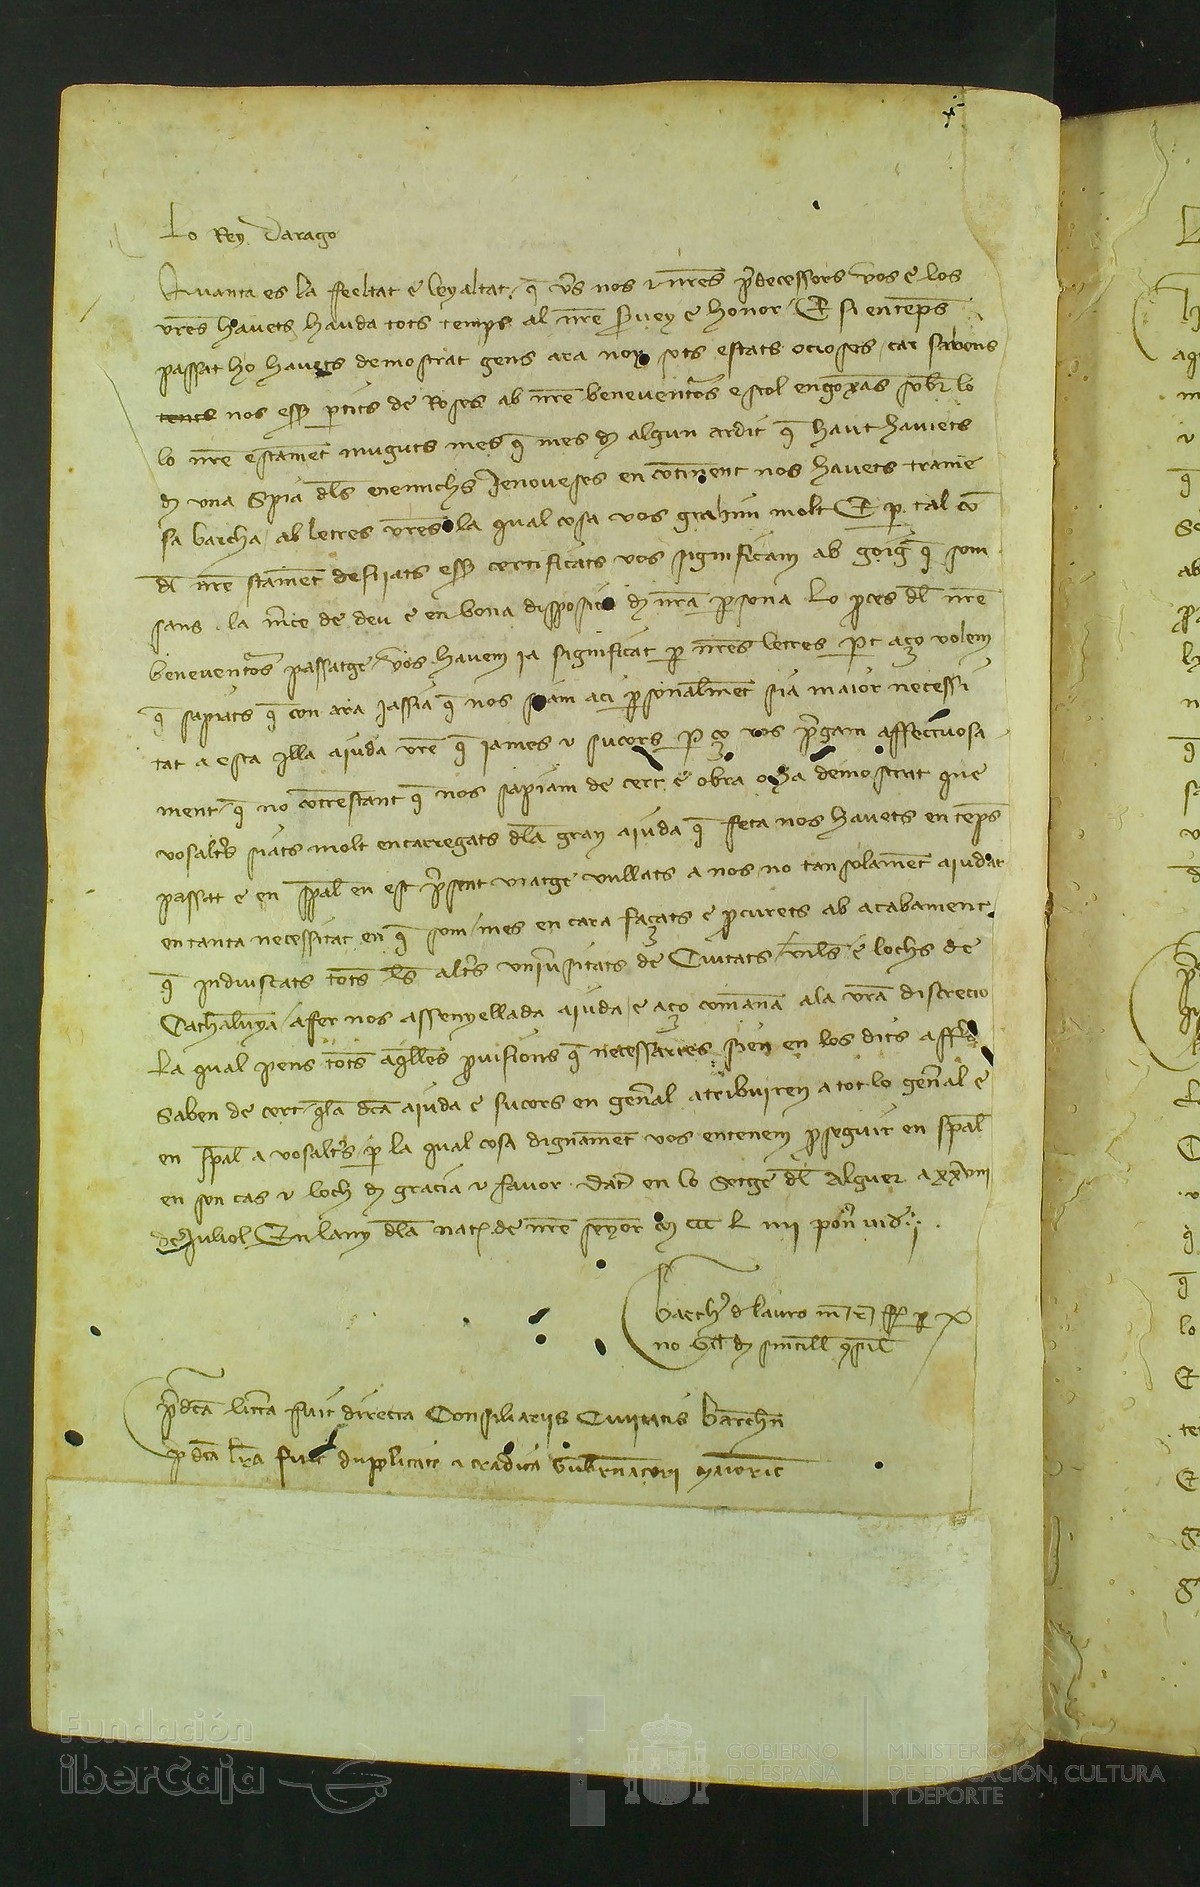 Lo Rey Darago
Quanta es la feeltat e leyaltat q̄ v̄s nos ⁊ nr̄es p̄decessors vos e los
vr̄es havets hauda tots temps al nr̄e s̄uey e honor Et si en temps
passat ho havets demostrat gens ara no sots estats ociosos car sabens
nos ess̄ p̄tits de Roses ab nr̄e beneventōs estol sobr̄ lo
lo nr̄e estamēt muguts mes q̄ mes d algun ardit q̄ haut haviets
d una Spia dl̄s enemichs Jenoveses en cōtinent nos havets trame
sa barcha ab letres vr̄es la qual cosa vos grahim molt Et p̄ tal cō
dl̄ nr̄e stamēt desijats ess̄ certificats vos significam ab goig q̄ som
sans la m̄ce de deu e en bona disposicio d nr̄a p̄sona Lo p̄ces dl̄ nr̄e
beneventōs passatge vos havem ia significat p̄ nr̄es letres P̄o aço volem
q̄ sapiats q̄ con ara jassia q̄ nos siam aci p̄sonalmēt sia maior necessi
tat a esta illa ajuda vr̄e q̄ iames ⁊ sucors p̄ ço vos p̄gam affectuosa
ment q̄ no cōtrestant q̄ nos sapiam de cert e obra o ha demostrat que
vosalt̄s siats molt encarregats dl̄a gran ajuda q̄ feta nos havets en temps
passat e en sp̄al en est p̄sent viatge vullats a nos no tan solamēt ajudar
en tanta necessitat en q̄ som mes encara façats e p̄curets ab acabament
q̄ induiscats tots l̄s alt̄s univ̄sitats de Ciutats viles e lochs de
Cathalunya afer nos assenyellada ajuda e aço comanā ala vr̄a discrecio
La qual pens tots aq̄lles p̄visions q̄ necessaries sien en los dits aff̄s
Saben de cert q̄ la dc̄a ajuda e sucors en gen̄al atribuirem a tot lo gen̄al e
en sp̄al a vosalt̄s p̄ la qual cosa dignamēt vos entenem p̄seguir en sp̄al
en son cas ⁊ loch d gracia ⁊ favor dat̄ en lo Setge dl̄ Alguer a xxviii
de Juliol En lany dl̄a nat̄ de nr̄e senyor M ccc L iiii
p̄dc̄a litt̄a fuit directa Consiliariis Civitatis Barchn̄
p̄dc̄a lr̄a fuit dupplicata ⁊ tradita Gub̄rnatori Maioric̄
Fundación
iberCaja
GOBIERNO
DE ESPAÑA
MINISTERIO
DE EDUCACIÓN, CULTURA
Y DEPORTE